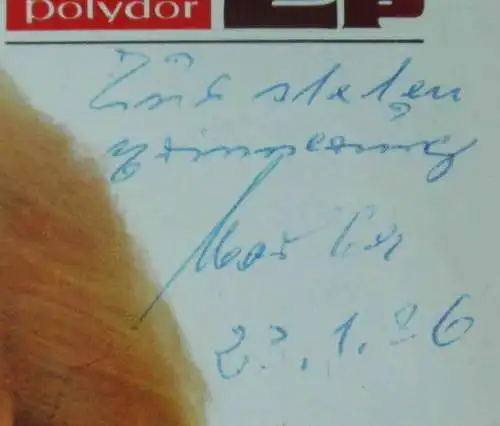 polydor LP
Zur steten
Erinnerung
23.1.86